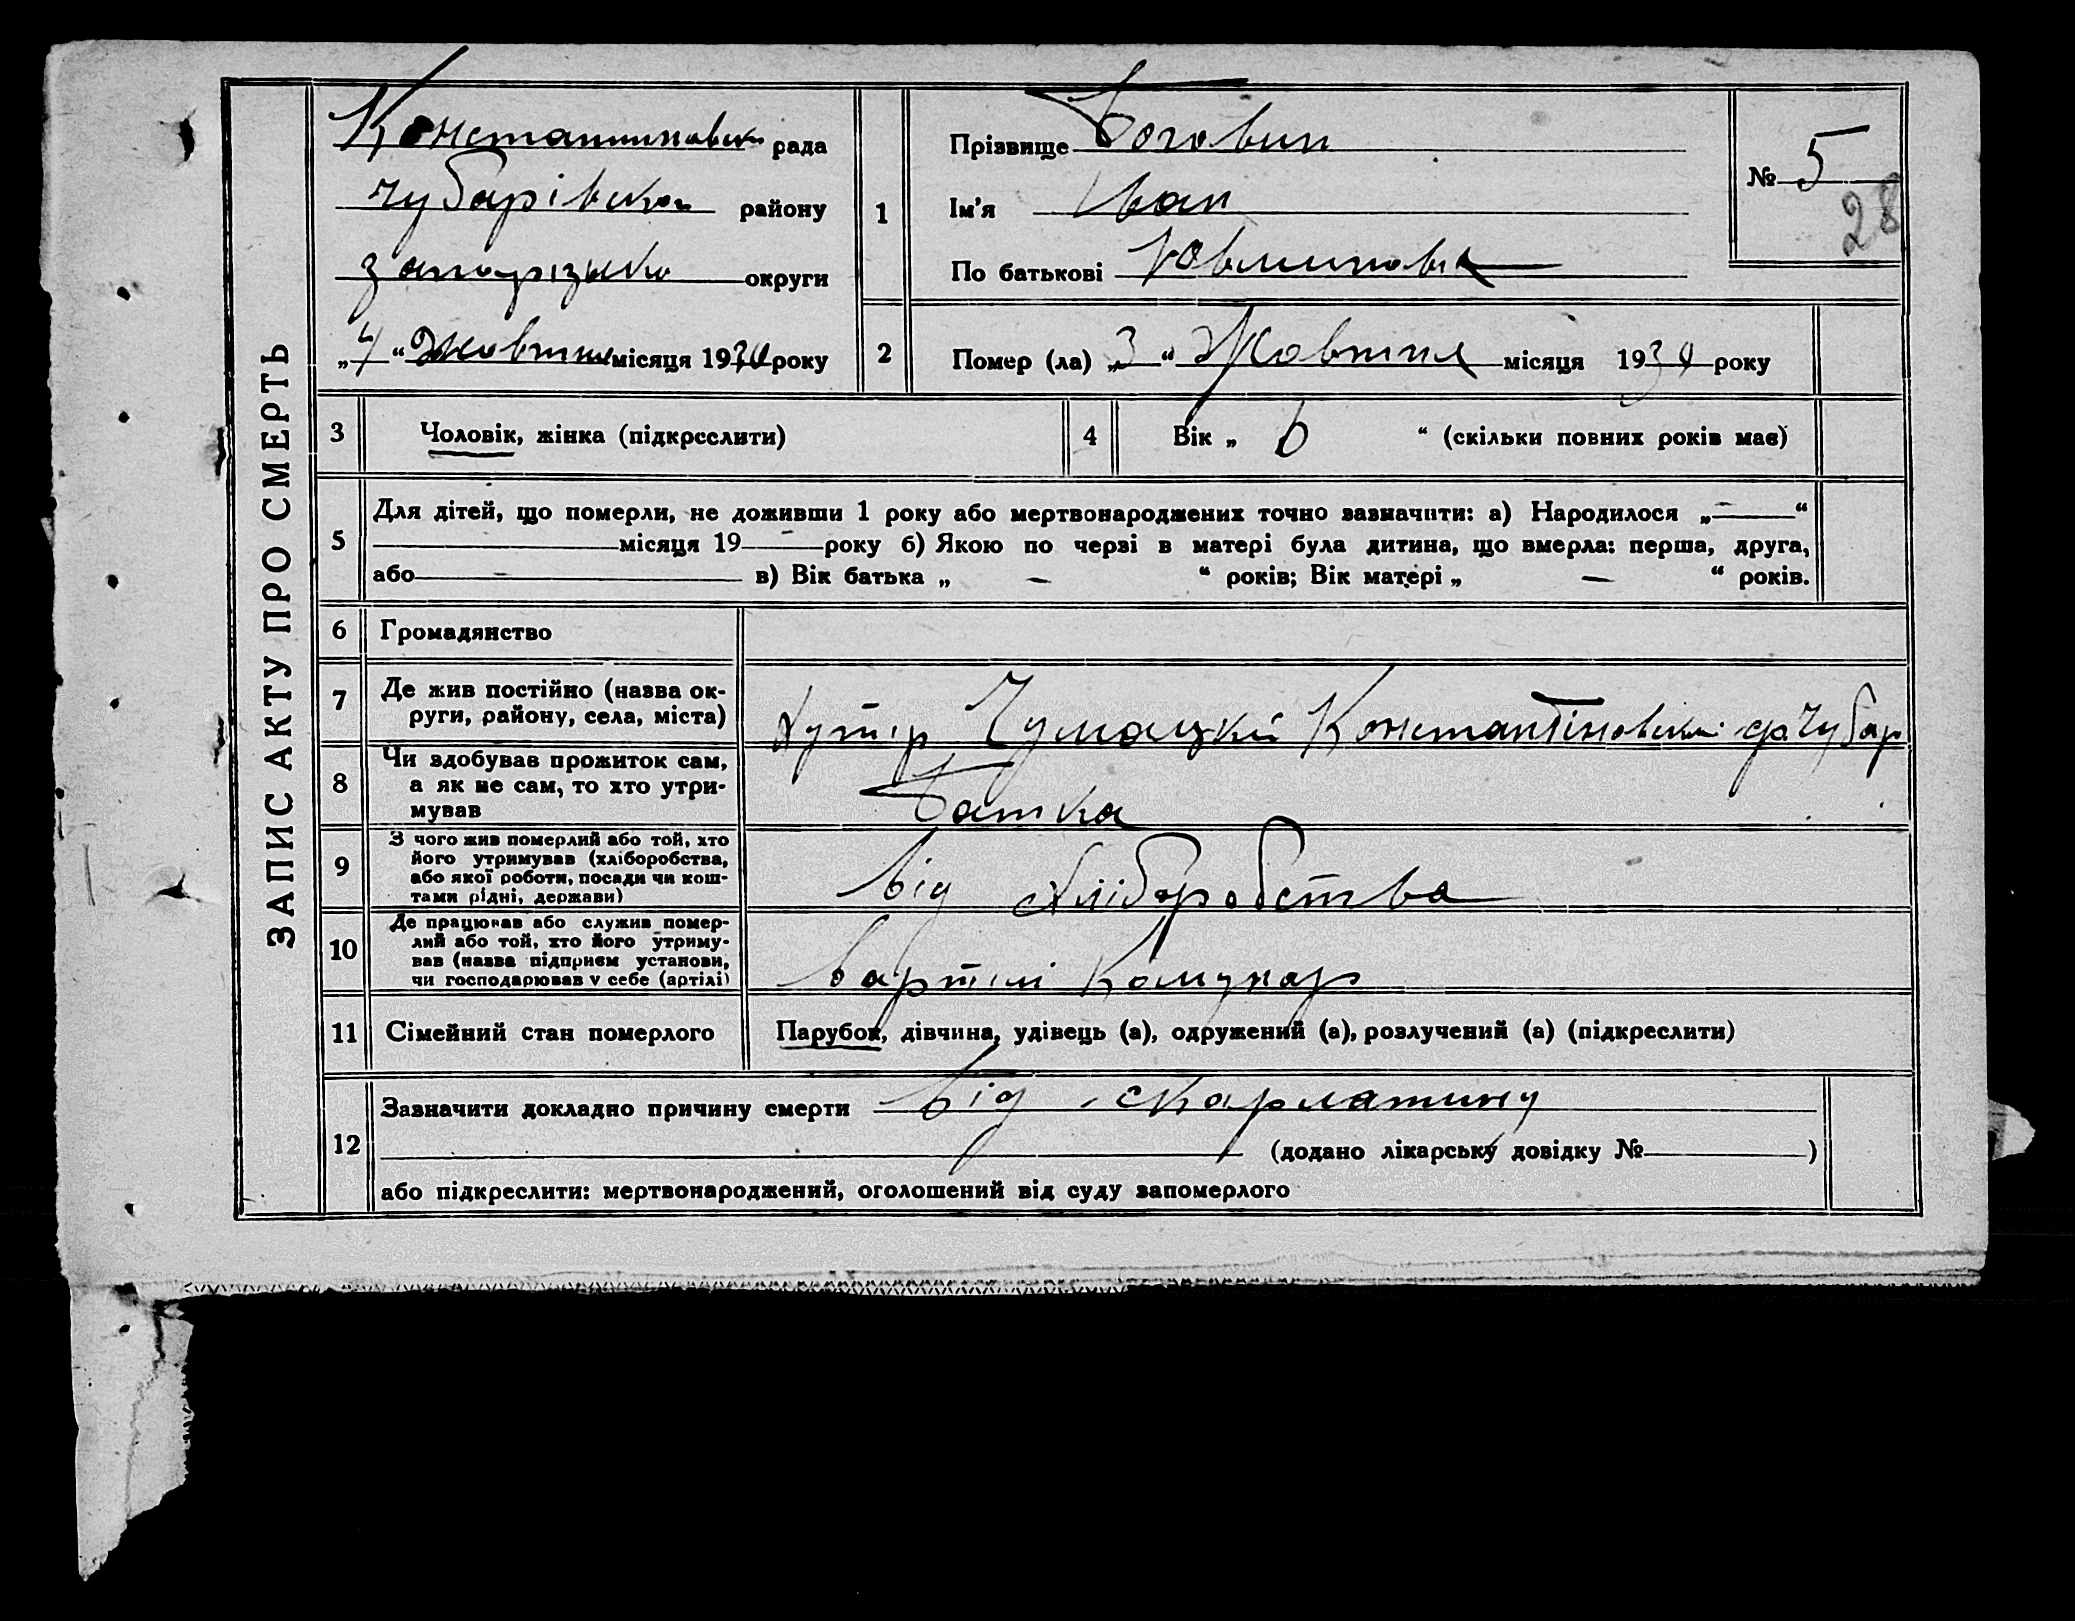 ЗАПИС АКТУ ПРО СМЕРТЬ
Константиновськ рада
Чубарівсько району
Запорізько округи
„4“ Жовтня місяця 1930 року
1
Прізвище Боговин
Ім'я Іван
По батькові
№ 5
28
2
Помер (ла) „3“ Жовтня місяця 1930 року
3
Чоловік, жінка (підкреслити)
4
Вік „ 6 “ (скільки повних років має)
5
Для дітей, що померли, не доживши 1 року або мертвонароджених точно зазначити: а) Народилося „ — “
місяця 19 — року б) Якою по черзі в матері була дитина, що вмерла: перша, друга,
або — в) Вік батька „ — “ років; Вік матері „ — “ років.
6
Громадянство
7
Де жив постійно (назва ок-
руги, району, села, міста)
Хутір Чумацкий Константіновськи с/р Чубар
8
Чи здобував прожиток сам,
а як не сам, то хто утри-
мував
Батка
9
З чого жив померлий або той, хто
його утримував (хліборобства,
або якої роботи, посади чи кош-
тами рідні, держави)
Від Хліборобства
10
Де працював або служив помер-
лий або той, хто його утриму-
вав (назва підприєм установи,
чи господарював у себе (артілі)
Вартілі Комунар
11
Сімейний стан померлого
Парубок, дівчина, удівець (а), одружений (а), розлучений (а) (підкреслити)
12
Зазначити докладно причину смерти Від скарлатину
(додано лікарську довідку № )
або підкреслити: мертвонароджений, оголошений від суду запомерлого